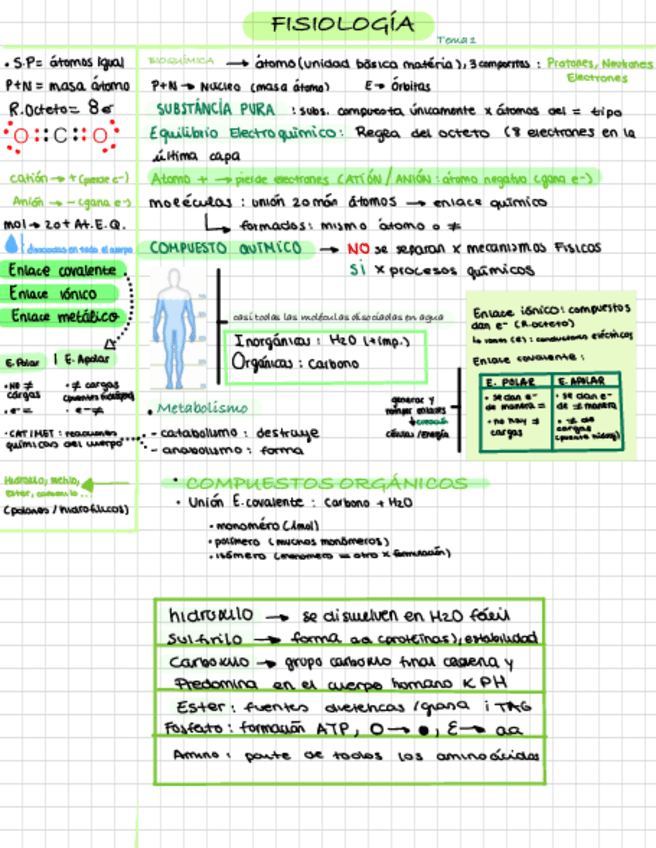 FISIOLOGÍA
Tema 1
• S.P = átomos igual
P+N = masa átomo
R.Octeto = 8e-
O :: C :: O
catión → + (pierde e-)
Anión → - (gana e-)
mol → 20+ At.E.Q.
disociadas en todo el cuerpo
Enlace covalente
Enlace iónico
Enlace metálico
E. Polar | E. Apolar
• NO ≠ cargas
• e- =
• ≠ cargas
• e- ≠
• CAT/MET : reacciones
químicas del cuerpo
Hidroxilo, metilo,
Ester, carboxilo...
(polares / hidrofílicos)
BIOQUÍMICA → átomo (unidad básica matéria), 3 comporrtes : Protones, Neutrones
Electrones
P+N → Nucleo (masa átomo) E → Órbitas
SUBSTÁNCIA PURA : subs. compuesta únicamente x átomos del = tipo
Equilibrio Electroquímico : Regla del octeto (8 electrones en la
última capa
Atomo + → pierde electrones CATIÓN / ANIÓN : átomo negativo (gana e-)
moléculas : unión 2 o más átomos → enlace químico
formados : mismo átomo o ≠
COMPUESTO QUÍMICO → NO se separan x mecanismos Físicos
SI x procesos químicos
casi todas las moléculas disociadas en agua
Inorgánicas : H2O (+imp.)
Orgánicas : Carbono
Enlace iónico : compuestos
dan e- (R.octeto)
conductores eléctricos
Enlace covalente :
E. POLAR
• se dan e-
de manera =
• no hay ≠
cargas
E. APOLAR
• se dan e-
de ≠ manera
• ≠ de
cargas
(puente hidrog)
• Metabolismo
- catabolismo : destruye
- anabolismo : forma
generar y
romper enlaces
creación
células / energía
• COMPUESTOS ORGÁNICOS
• Unión E.covalente : Carbono + H2O
• monomero (1mol)
• polímero (muchos monómeros)
• isómero (monomero = otro x formulación)
hidroxilo → se disuelven en H2O fácil
Sulfirilo → forma aa (proteínas), estabilidad
Carboxilo → grupo carboxilo final cadena y
Predomina en el cuerpo humano x PH
Ester : fuentes dietéticas / grasa i TAG
Fosfato : formación ATP, O → ●, E → aa
Amino : parte de todos los aminoácidos